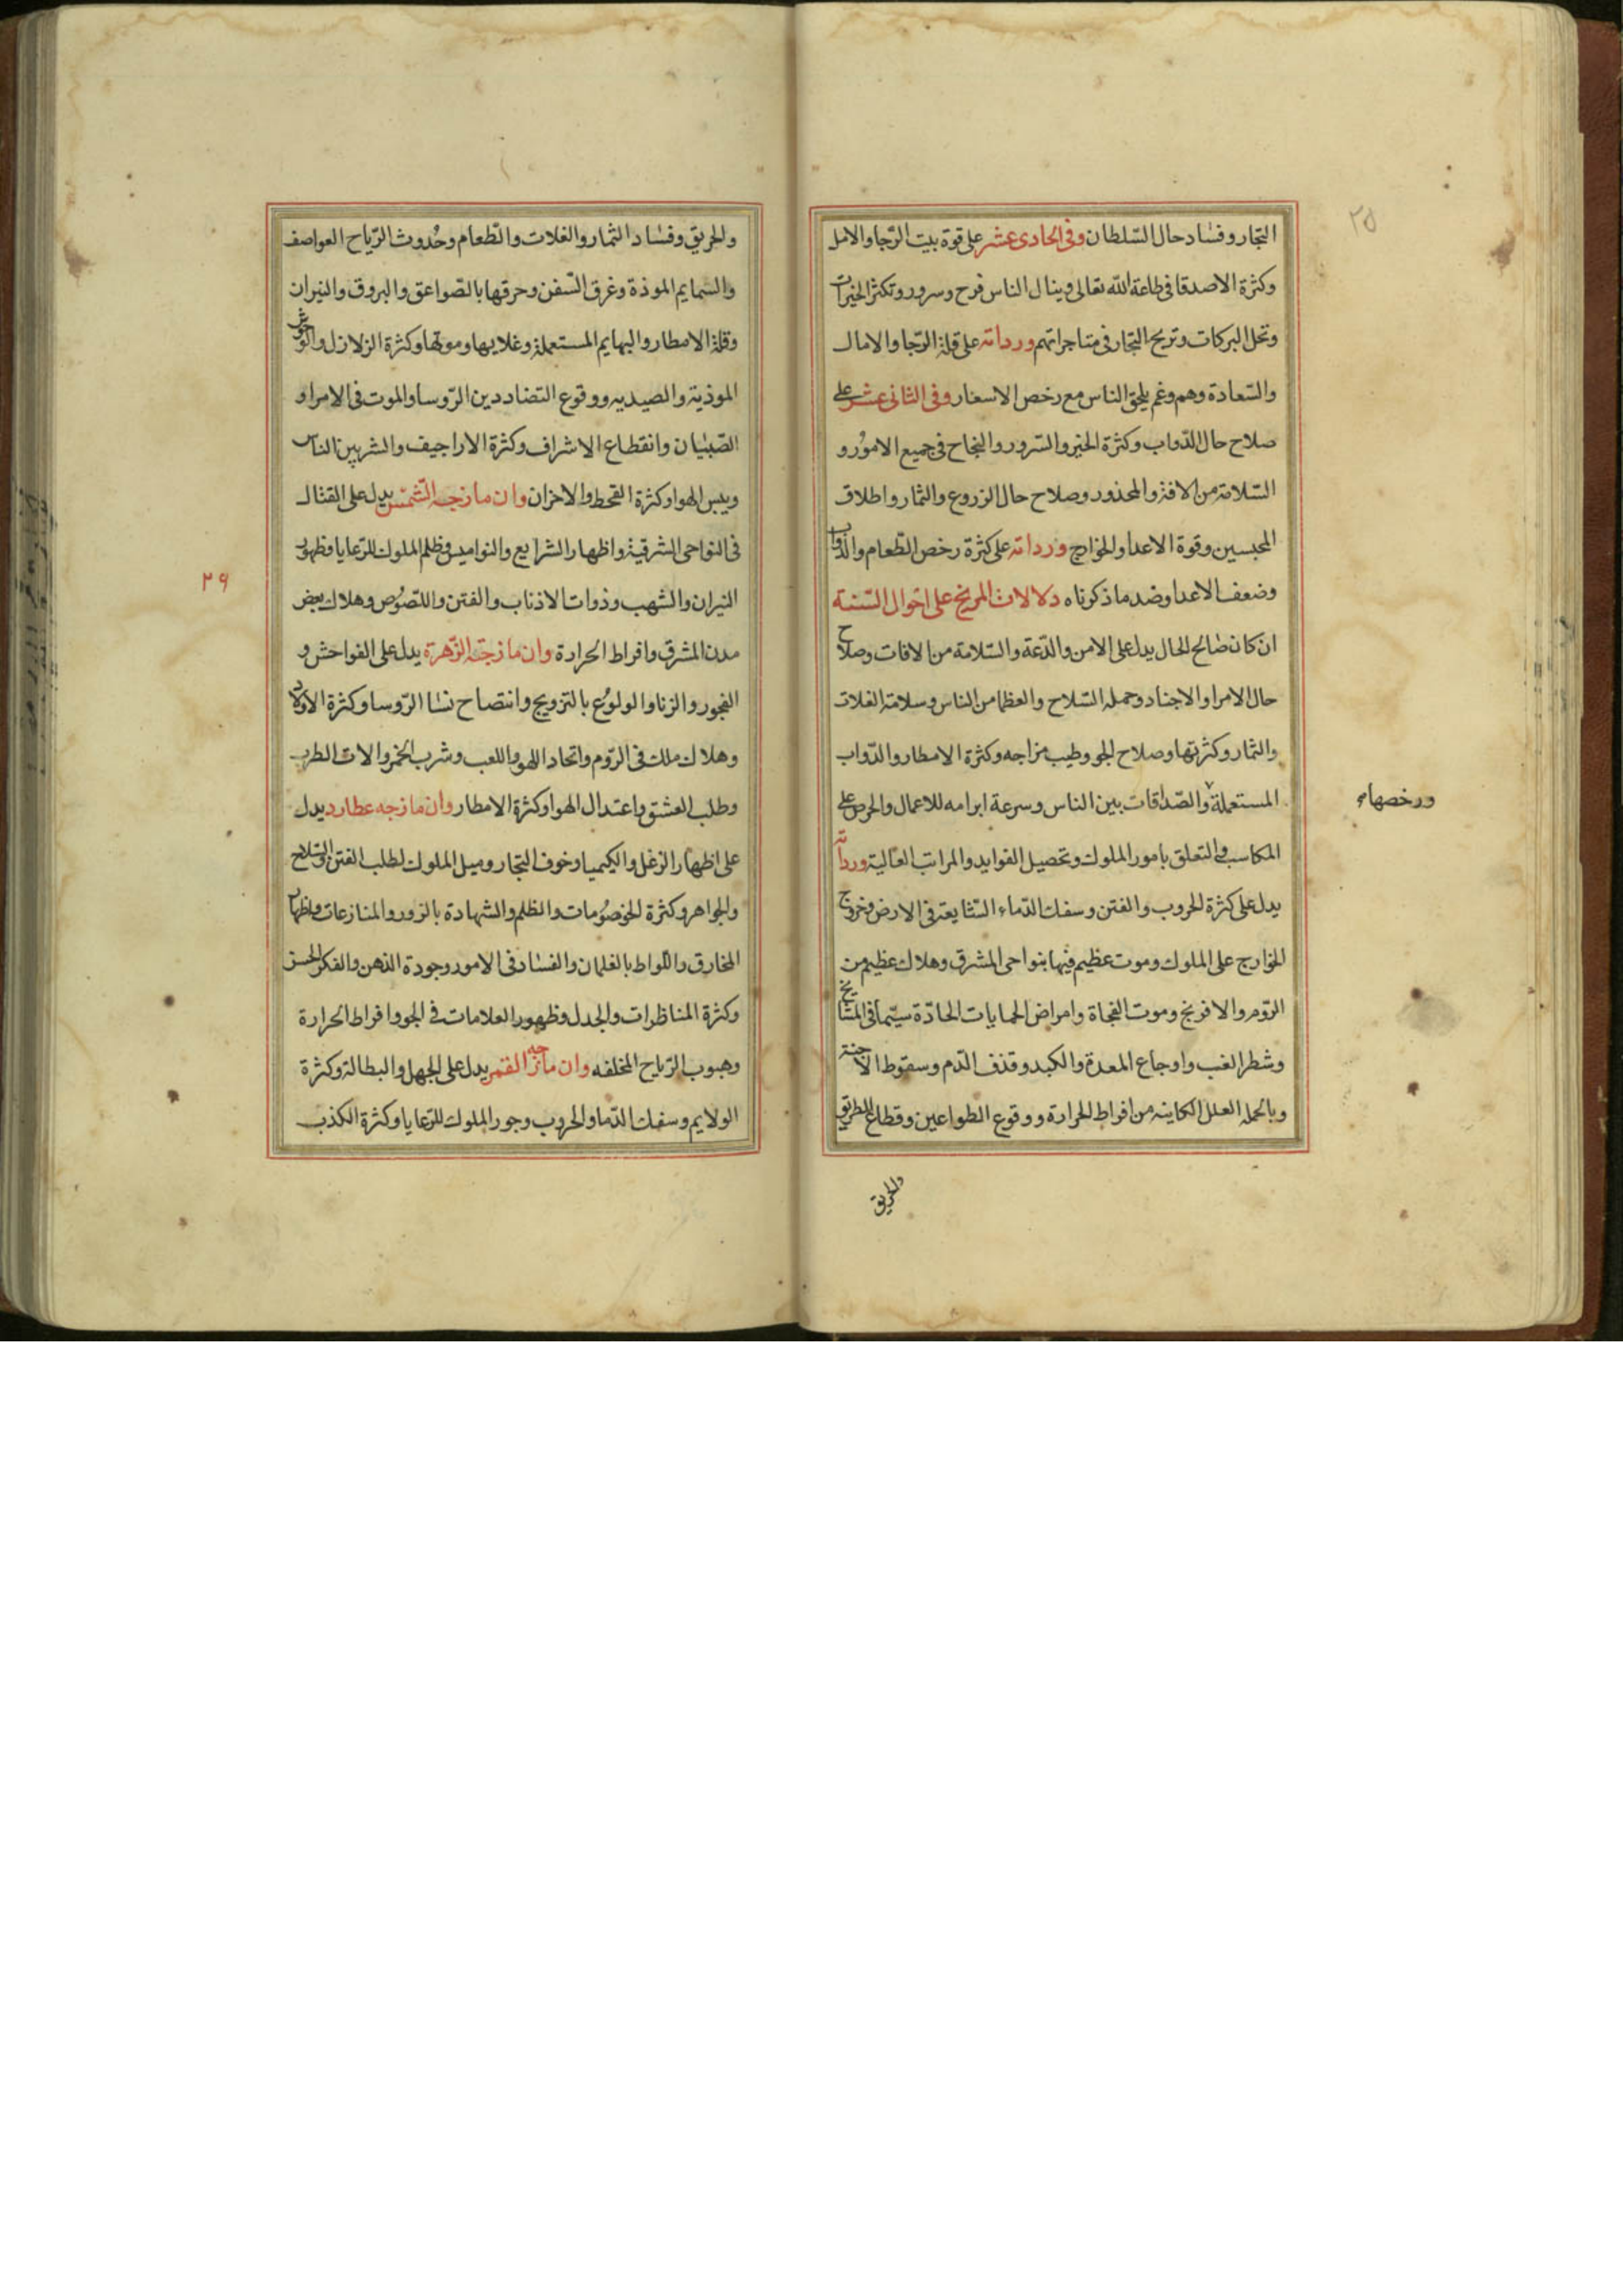 ٢٥
التجار وفساد حال السلطان وفى الحادى عشر على قوة بيت الرجا والامل
وكثرة الاصدقا فى طاعة الله تعالى وينال الناس فرح وسرور وتكثر الخيرات
وتحل البركات وتربح التجار فى متاجراتهم ورداته على قلة الرجا والامال
والسعادة وهم وغم يلحق الناس مع رخص الاسعار وفى الثانى عشر على
صلاح حال الدواب وكثرة الخير والسرور والنجاح فى جميع الامور و
السلامة من الافة والمحذور وصلاح حال الزروع والثمار واطلاق
المحبسين وقوة الاعدا والخوارج ورداته على كثرة رخص الطعام والدواب
وضعف الاعدا وضد ما ذكرناه دلالات المريخ على احوال السنة
ان كان صالح الحال يدل على الامن والدعة والسلامة من الافات وصلاح
حال الامرا والاجناد وحمله السلاح والعظما من الناس وسلامة الغلات
والثمار وكثرتها وصلاح الجو وطيب مزاجه وكثرة الامطار والدواب
المستعملة والصداقات بين الناس وسرعة ابرامه للاعمال والحرص على
ورخصها
المكاسب والتعلق بامور الملوك وتحصيل الفوايد والمراتب العالية ورداته
يدل على كثرة الحروب والفتن وسفك الدماء فى الارض وخروج
الخوارج على الملوك وموت عظيم فيها بنواحى المشرق وهلاك عظيم من
الروم والافرنج وموت الفجاة وامراض الحمايات الحادة سيما فى المشايخ
وشطر الغب واوجاع المعدة والكبد وقذف الدم وسقوط الاجنة
وبالجمله العلل الكاينه من افراط الحرارة ووقوع الطواعين وقطاع الطريق
والحريق
والحريق وفساد الثمار والغلات والطعام وحدوث الرياح العواصف
والسمايم الموذة وغرق السفن وحرقها بالصواعق والبروق والنيران
وقلة الامطار والبهايم المستعملة وغلايها وموتها وكثرة الزلازل والوحوش
الموذية والصيديه ووقوع التضاددين الروسا والموت فى الامرا و
الصبيان وانقطاع الاشراف وكثرة الاراجيف والشر بين الناس
ويبس الهوا وكثرة القحط والاحزان وان مازجه الشمس يدل على القتال
فى النواحى الشرقية واظهار الشرايع والنواميس وظلم الملوك للرعايا وظهور
٢٦
النيران والشهب وذوات الاذناب والفتن واللصوص وهلاك بعض
مدن المشرق وافراط الحرارة وان مازجته الزهرة يدل على الفواحش و
الفجور والزنا والولوع بالتزويج وانتصاح نسا الروسا وكثرة الاولاد
وهلاك ملك فى الروم واتحاد اللهو واللعب وشرب الخمر والات الطرب
وطلب العشق واعتدال الهوا وكثرة الامطار وان مازجه عطارد يدل
على اظهار الزغل والكيميا وخوف التجار وميل الملوك لطلب الفتن والسلاح
والجواهر وكثرة الخصومات والظلم والشهادة بالزور والمنازعات واظهار
المخارق واللواط بالغلمان والفساد فى الامور وجودة الذهن والفكر الحسن
وكثرة المناظرات والجدل وظهور العلامات فى الجو وافراط الحرارة
وهبوب الرياح المخلفه وان مازجه القمر يدل على الجهل والبطالة وكثرة
الولايم وسفك الدما والحروب وجور الملوك للرعايا وكثرة الكذب